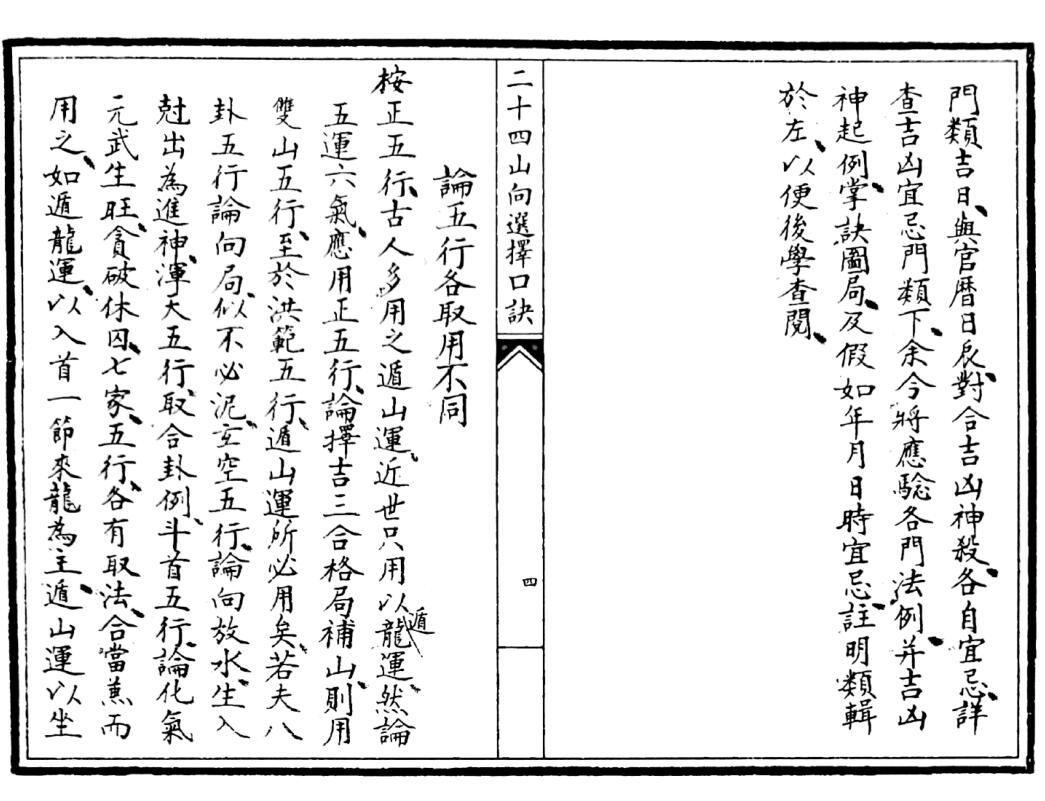 門類吉日、與官曆日辰、對合吉凶神殺、各自宜忌、詳
查吉凶宜忌門類下、余今將應驗各門法例、并吉凶
神起例掌訣圖局、及假如年月日時宜忌、註明類輯
於左、以便後學查閱、
二十四山向選擇口訣
四
論五行各取用不同
按正五行、古人多用之遁山運、近世只用以遁龍運、然論
五運六氣、應用正五行、論擇吉三合格局補山、則用
雙山五行、至於洪範五行、遁山運所必用矣、若夫八
卦五行論向局、似不必泥、玄空五行、論向放水、生入
尅出為進神、渾天五行、取合卦例、斗首五行、論化氣
元武生旺、貪破休囚、七家、五行、各有取法、合當兼而
用之、如遁龍運、以入首一節來龍為主、遁山運以坐